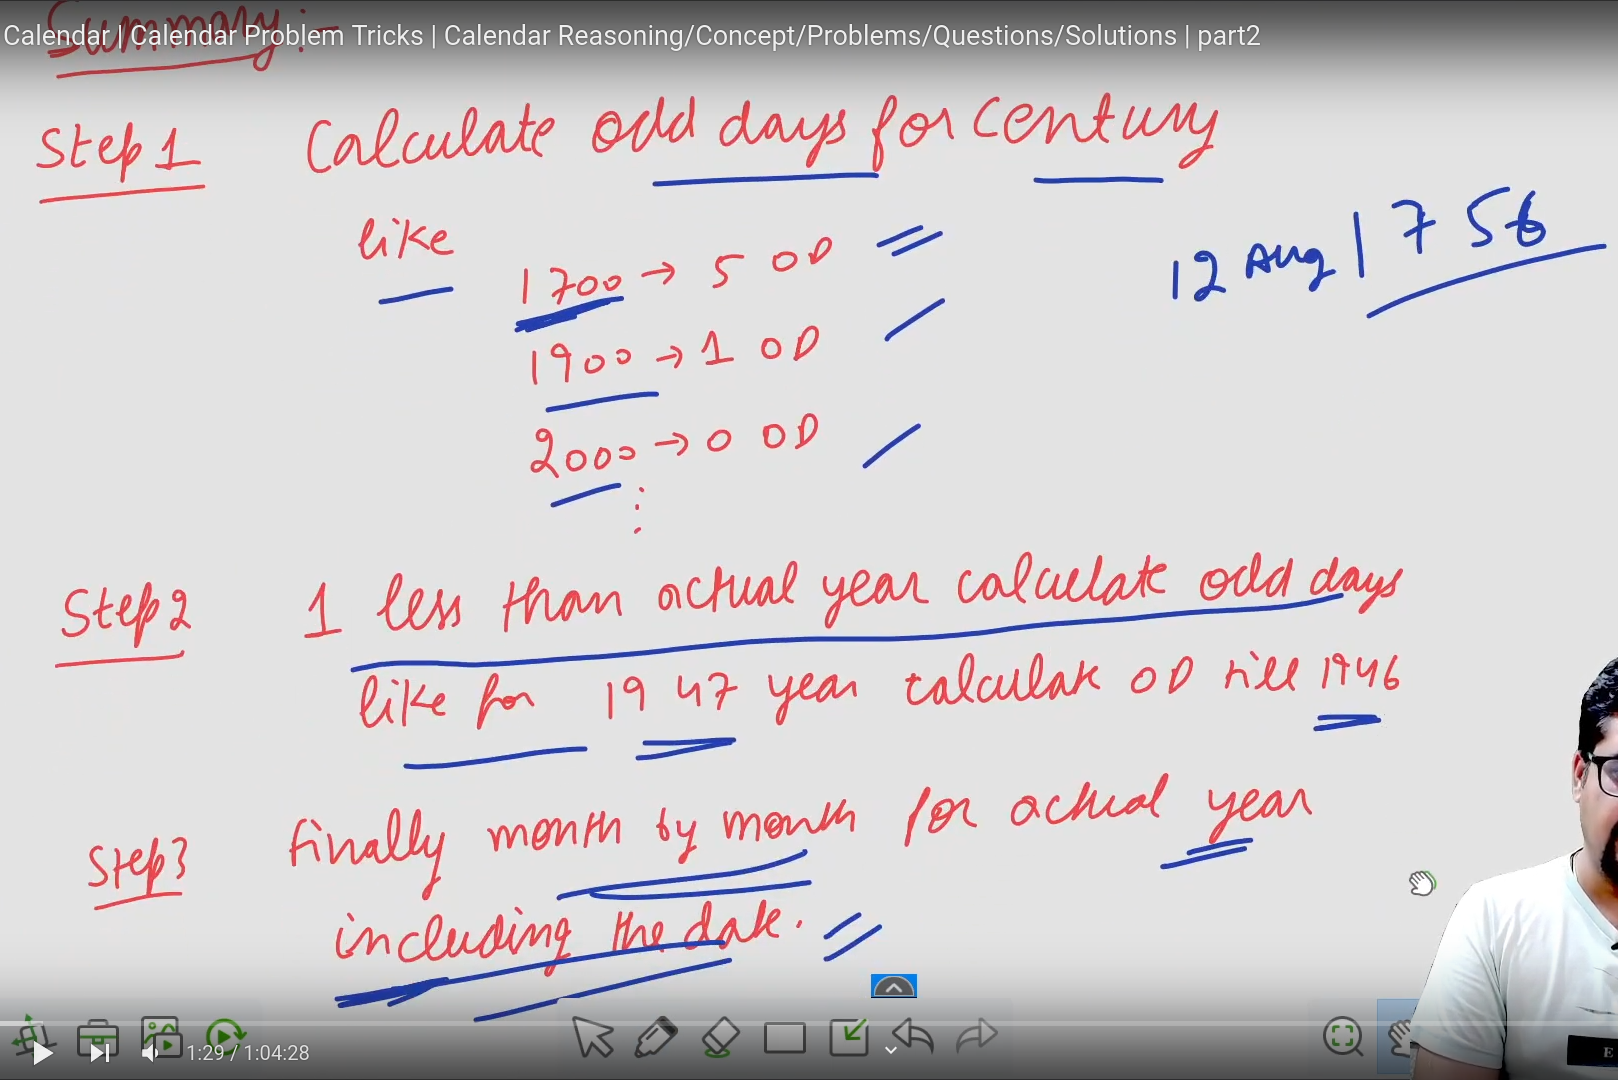 Summary:-
Calendar | Calendar Problem Tricks | Calendar Reasoning/Concept/Problems/Questions/Solutions | part2
Step 1 Calculate odd days for Century
like
1700 → 5 OD
12 Aug 1756
1900 → 1 OD
2000 → 0 OD
Step 2 1 less than actual year calculate odd days
like for 1947 year calculate OD till 1946
Step 3 finally month by month for actual year
including the date.
1:29 / 1:04:28
E